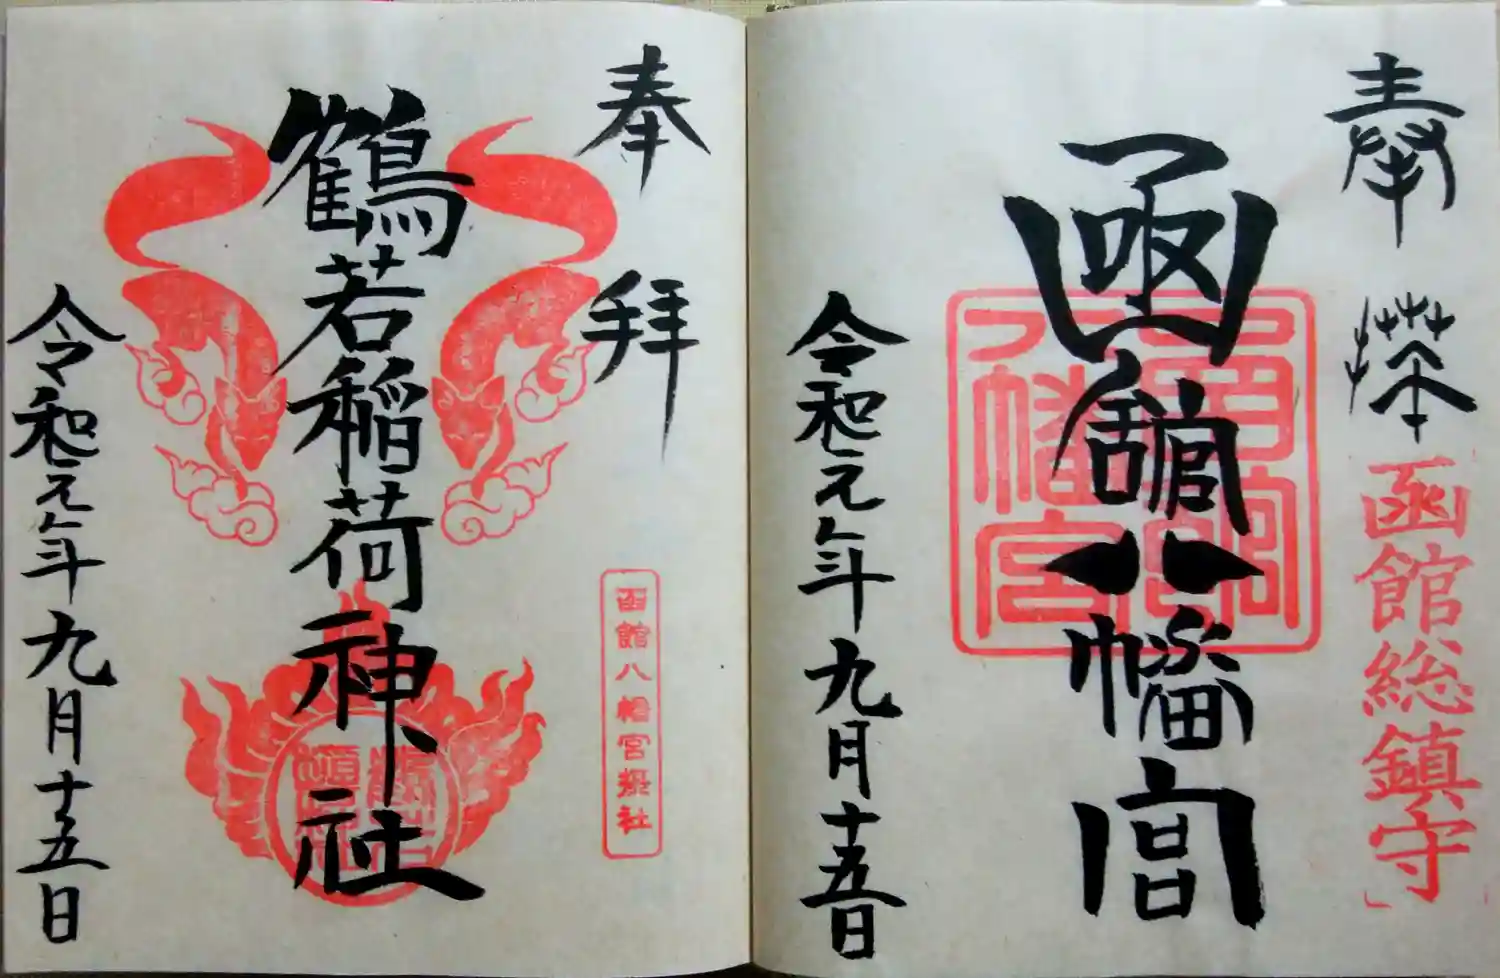 奉拝
函館総鎮守
函館八幡宮
八幡宮
令和元年九月十五日
奉拝
函館八幡宮摂社
鶴若稲荷神社
令和元年九月十五日